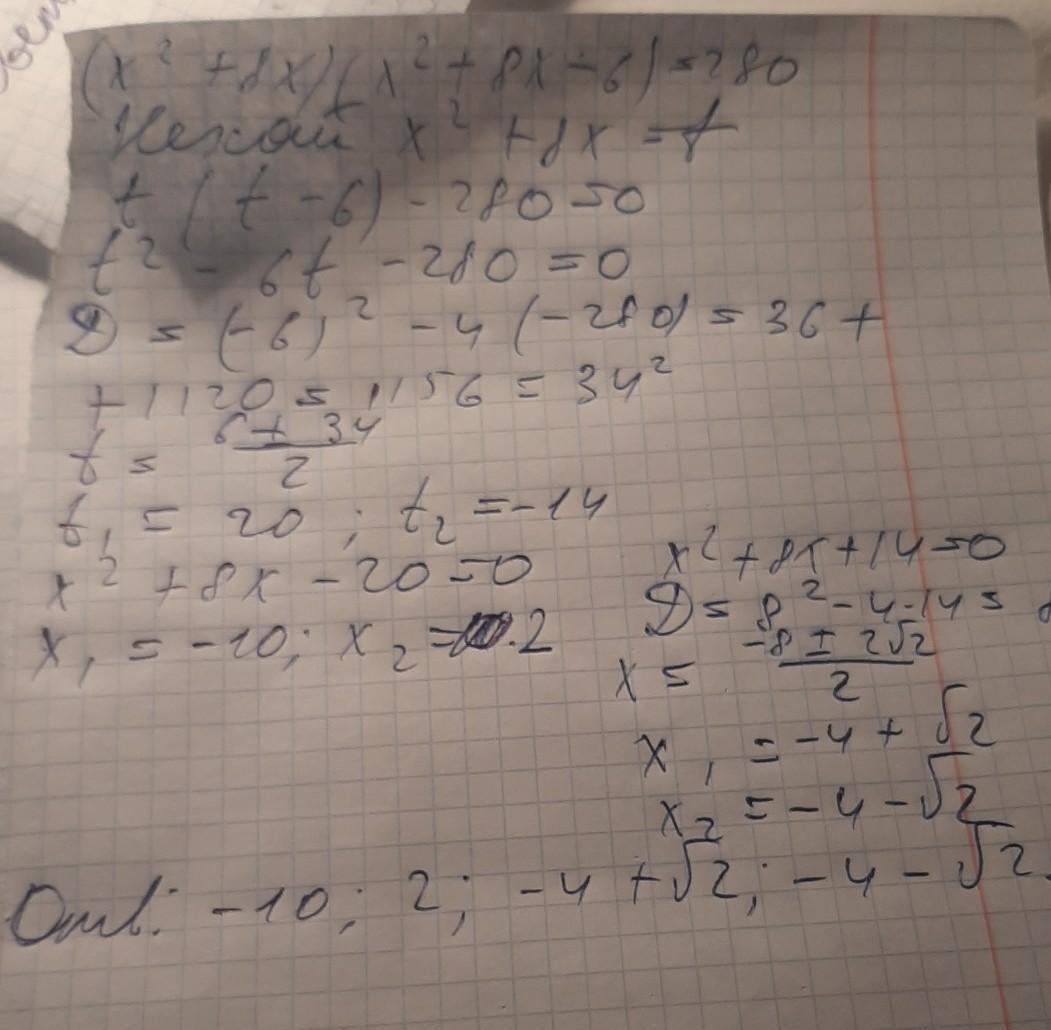 (x² + 8x)(x² + 8x - 6) = 280
x² + 8x = t
t (t - 6) - 280 = 0
t² - 6t - 280 = 0
D = (-6)² - 4 (-280) = 36 +
+ 1120 = 1156 = 34²
t = (6 ± 34)/2
t₁ = 20 ; t₂ = -14
x² + 8x - 20 = 0
x₁ = -10; x₂ = 2
x² + 8x + 14 = 0
D = 8² - 4·14 =
x = (-8 ± 2√2)/2
x₁ = -4 + √2
x₂ = -4 - √2
Отв: -10; 2; -4 + √2; -4 - √2.